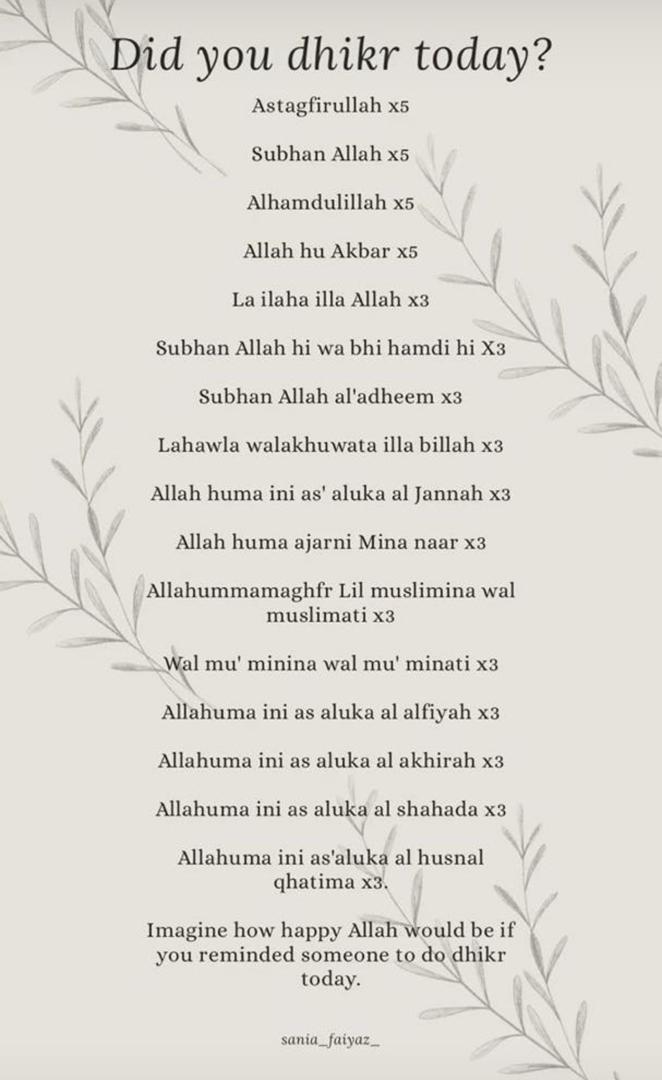 Did you dhikr today?
Astagfirullah x5
Subhan Allah x5
Alhamdulillah x5
Allah hu Akbar x5
La ilaha illa Allah x3
Subhan Allah hi wa bhi hamdi hi X3
Subhan Allah al'adheem x3
Lahawla walakhuwata illa billah x3
Allah huma ini as' aluka al Jannah x3
Allah huma ajarni Mina naar x3
Allahummamaghfr Lil muslimina wal
muslimati x3
Wal mu' minina wal mu' minati x3
Allahuma ini as aluka al alfiyah x3
Allahuma ini as aluka al akhirah x3
Allahuma ini as aluka al shahada x3
Allahuma ini as'aluka al husnal
qhatima x3.
Imagine how happy Allah would be if
you reminded someone to do dhikr
today.
sania_faiyaz_